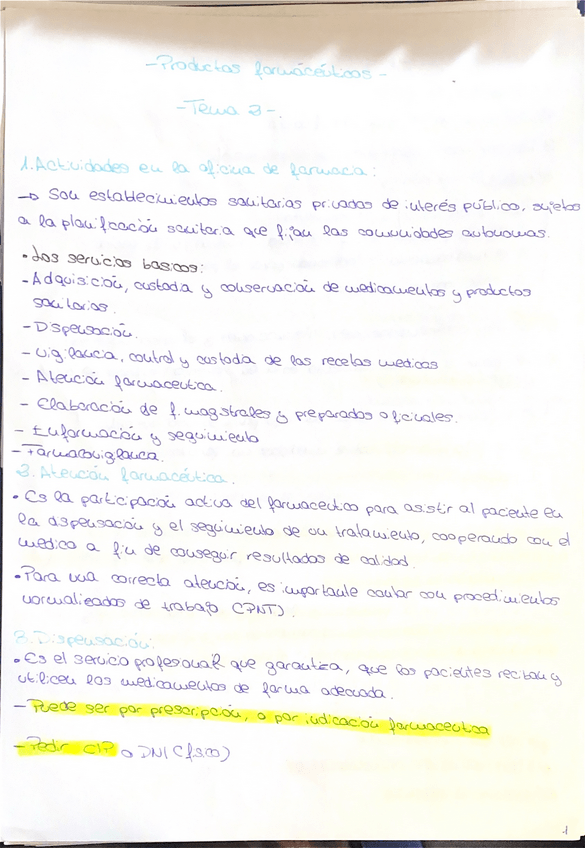 -Productos farmacéuticos-
-Tema 3-.
1. Actividades en la oficina de farmacia:
→ Son establecimientos sanitarios privados de interés público, sujetos
a la planificación sanitaria que fijan las comunidades autonomas.
• Los servicios basicos:
- Adquisición, custodia y conservación de medicamentos y productos
sanitarios.
- Dispensación.
- Vigilancia, control y custodia de las recetas medicas
- Atención farmaceutica.
- Elaboración de f. magistrales y preparados oficinales.
- Información y seguimiento
- Farmacovigilancia.
2. Atención farmacéutica.
• Es la participación activa del farmaceutico para asistir al paciente en
la dispensación y el seguimiento de un tratamiento, cooperando con el
medico a fin de conseguir resultados de calidad.
• Para una correcta atención, es importante contar con procedimientos
normalizados de trabajo (PNT).
3. Dispensación:
• Es el servicio profesional que garantiza, que los pacientes reciban y
utilicen los medicamentos de forma adecuada.
- Puede ser por prescripción, o por indicación farmaceutica
- Pedir CIP o DNI (físico)
1